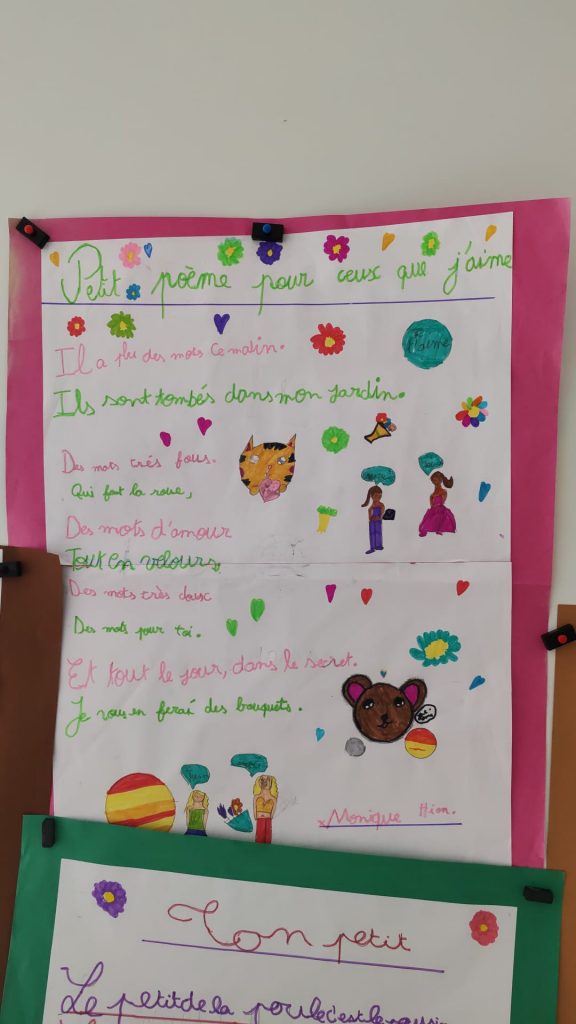 Petit poème pour ceux que j'aime
Il a plu des mots ce matin.
Ils sont tombés dans mon jardin.
Des mots trés fous.
Qui font la roue,
Des mots d'amour
Tout en velours,
Des mots très doux
Des mots pour toi.
Et tout le jour, dans le secret.
Je vous en ferai des bouquets.
Monique Hion.
Ton petit
Le petit de la poule c'est le poussin